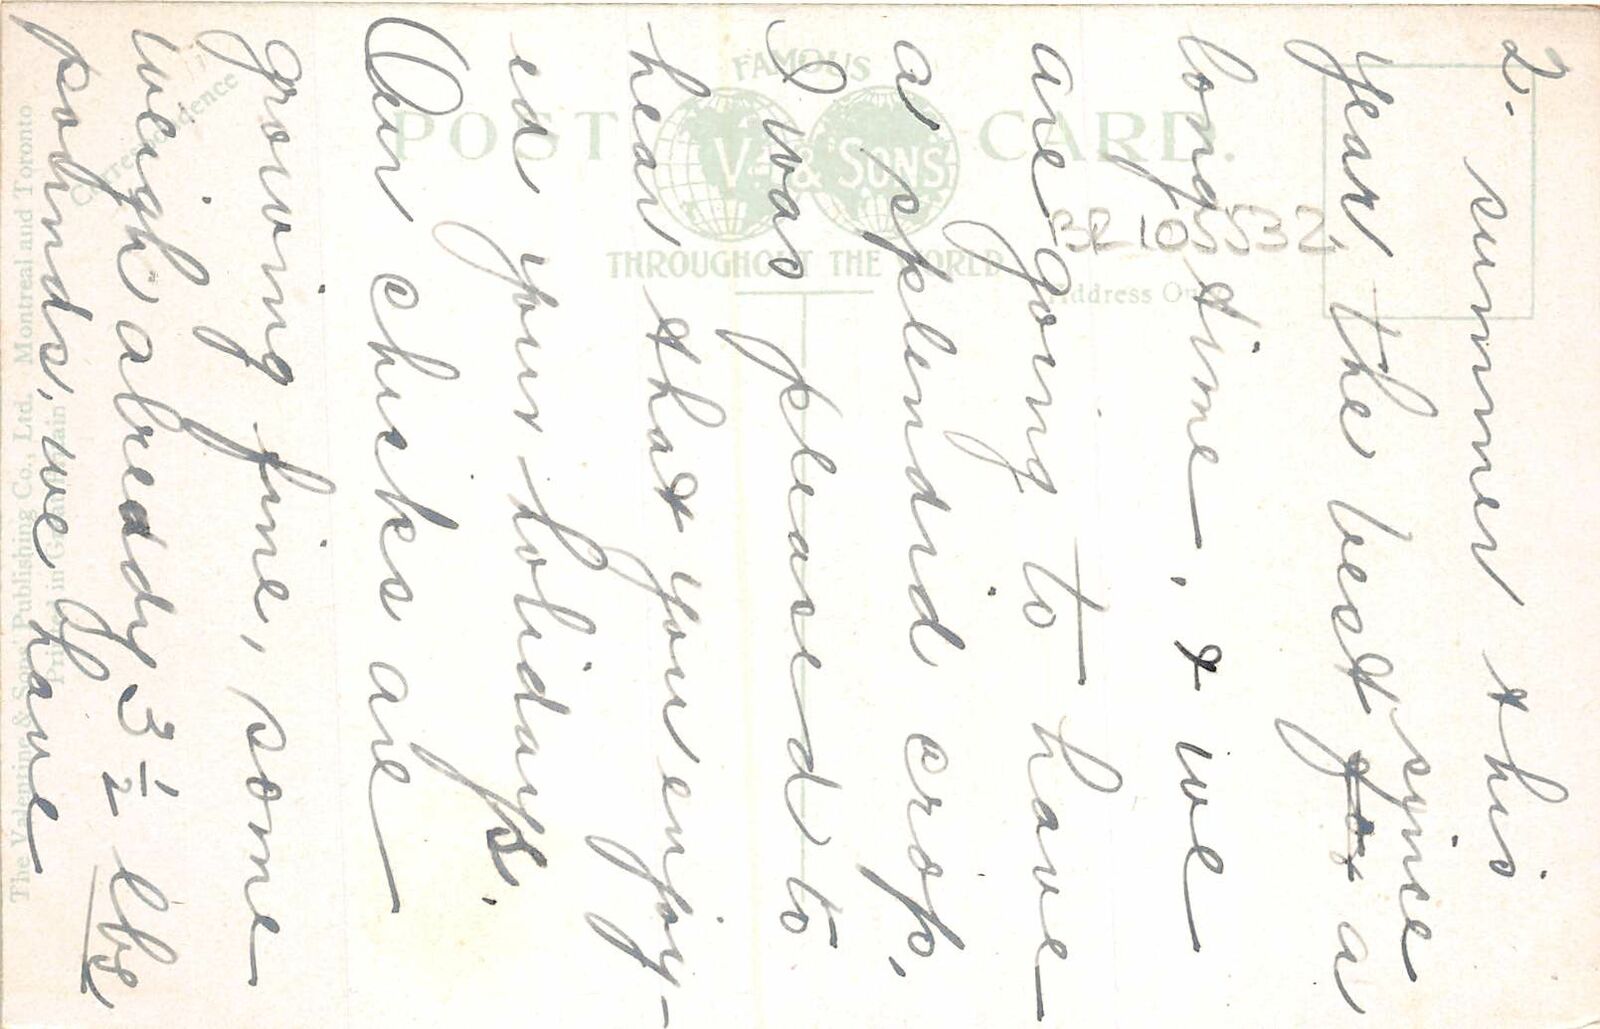 2. summer this
since
year, the best for a
long time, & we
are going to have
a splendid crop,
I was pleased to
hear that you enjoy-
ed your holidays.
Our chicks are
growing fine, some
weigh already 3 ½ lbs
pounds, we have
FAMOUS
POST CARD.
& SONS
THROUGHOUT THE WORLD
Correspondence
Address Only
The Valentine & Sons' Publishing Co., Ltd. Montreal and Toronto
Printed in Great Britain